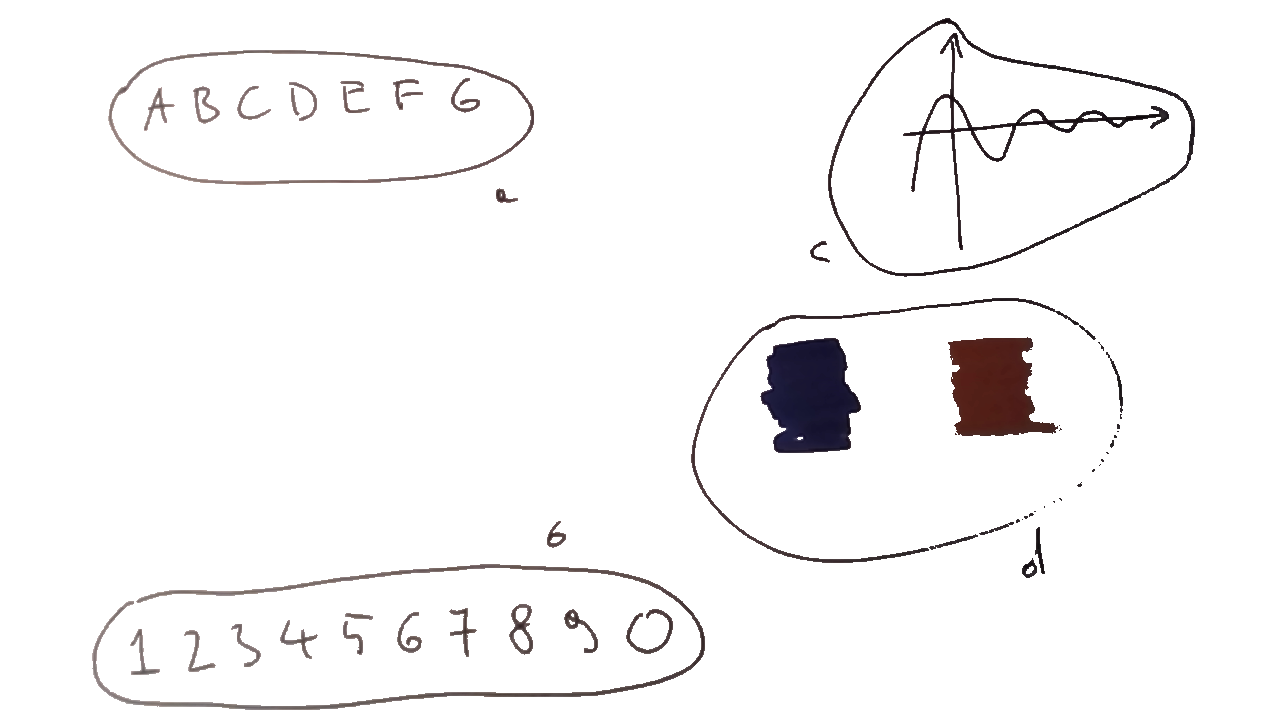 A B C D E F G
a
c
b
1 2 3 4 5 6 7 8 9 0
d